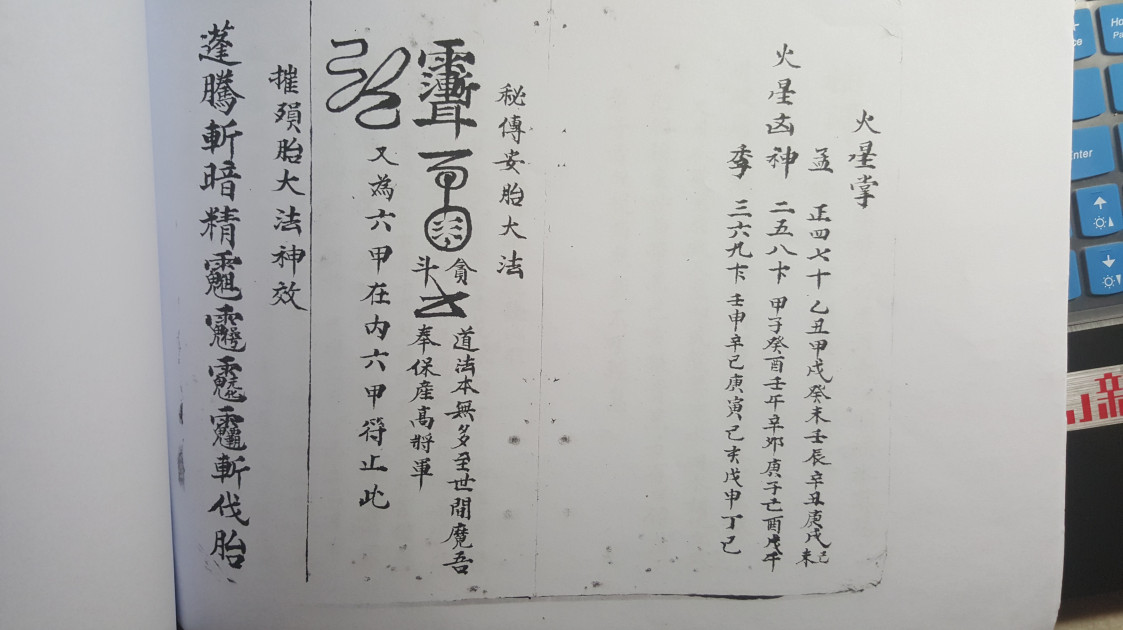 火星掌
孟 正四七十 乙丑甲戌癸未壬辰辛丑庚戌己未
火星凶神 二五八卞 甲子癸酉壬午辛夘庚子己酉戊午
季 三六九卞 壬申辛巳庚寅己亥戊申丁巳
秘傳安胎大法
貪 道法本無多至世間魔吾
斗 奉保産高將軍
又為六甲在内六甲符止此
摧殞胎大法神效
蓬騰斬暗精 斬伐胎
Enter